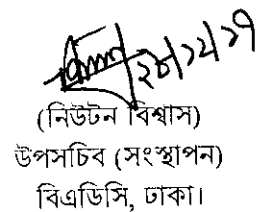 ২৮/১২/১৭
(নিউটন বিশ্বাস)
উপসচিব (সংস্থাপন)
বিএডিসি, ঢাকা।